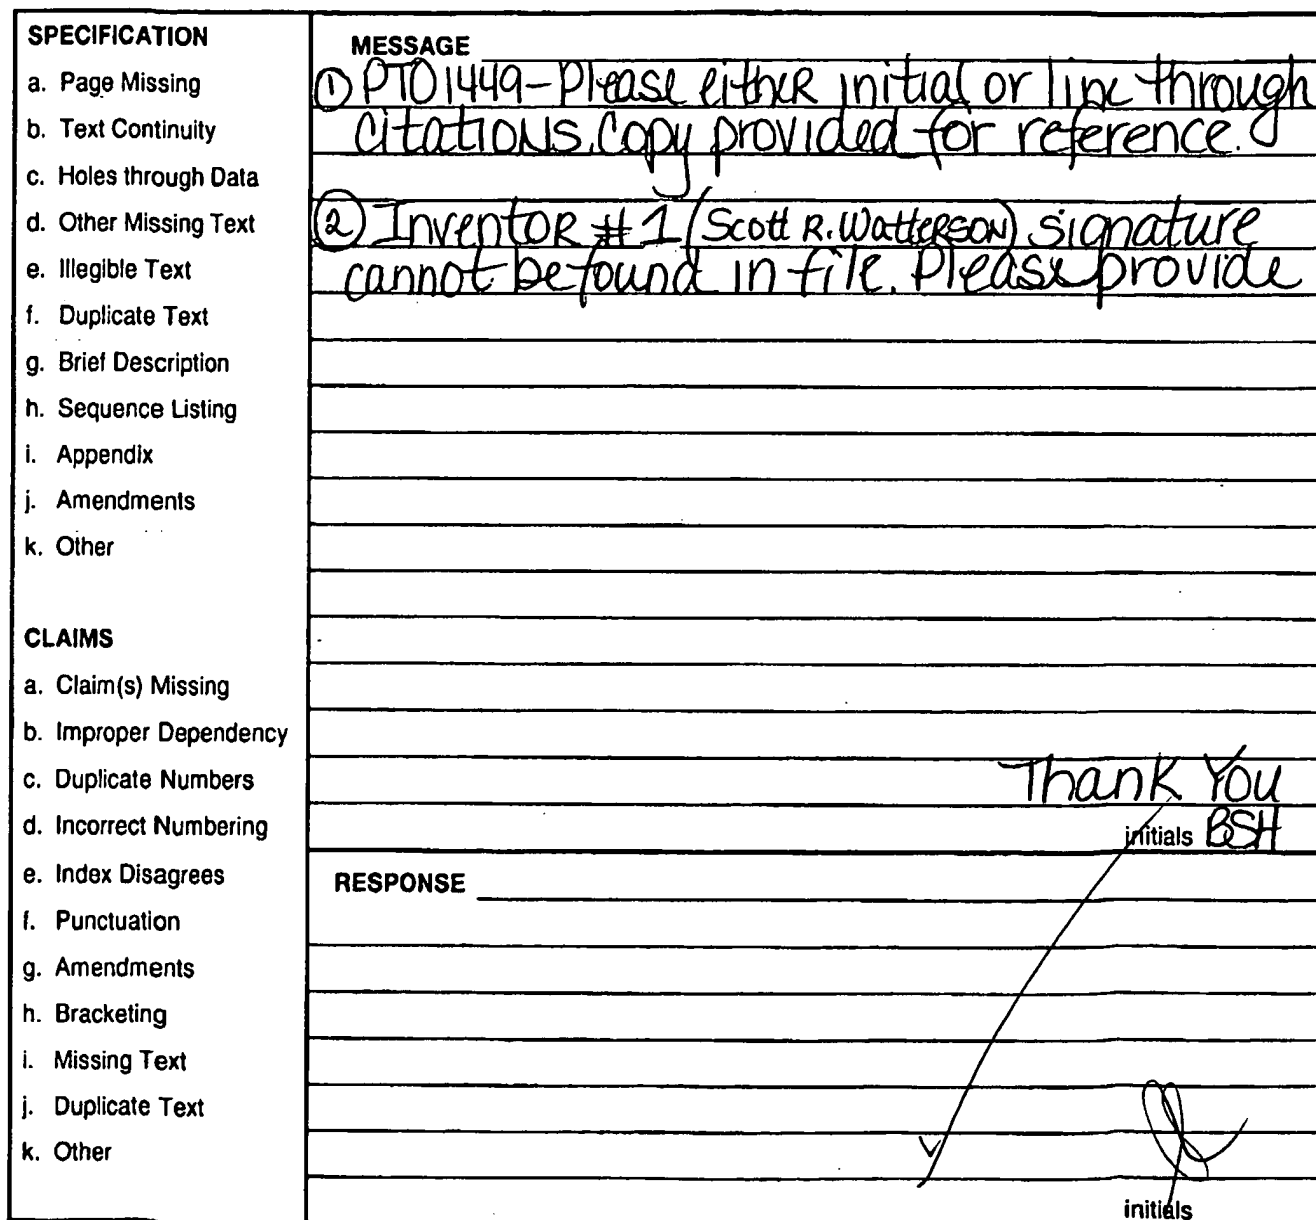 SPECIFICATION
a. Page Missing
b. Text Continuity
c. Holes through Data
d. Other Missing Text
e. Illegible Text
f. Duplicate Text
g. Brief Description
h. Sequence Listing
i. Appendix
j. Amendments
k. Other
CLAIMS
a. Claim(s) Missing
b. Improper Dependency
c. Duplicate Numbers
d. Incorrect Numbering
e. Index Disagrees
f. Punctuation
g. Amendments
h. Bracketing
i. Missing Text
j. Duplicate Text
k. Other
MESSAGE
① PTO1449-Please either initial or line through
citations. Copy provided for reference.
② Inventor #1 (Scott R. Watterson) signature
cannot be found in file. Please provide
Thank You
initials BSH
RESPONSE
initials